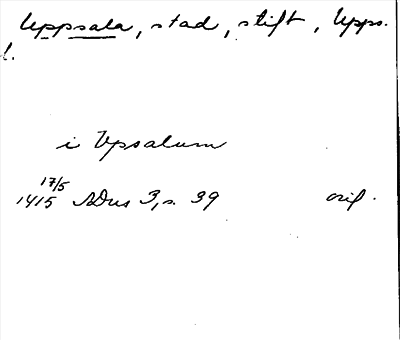 Uppsala, stad, stift, Upps.
l.
i Vpsalum
17/5
1415 SDns 3, s. 39 orig.